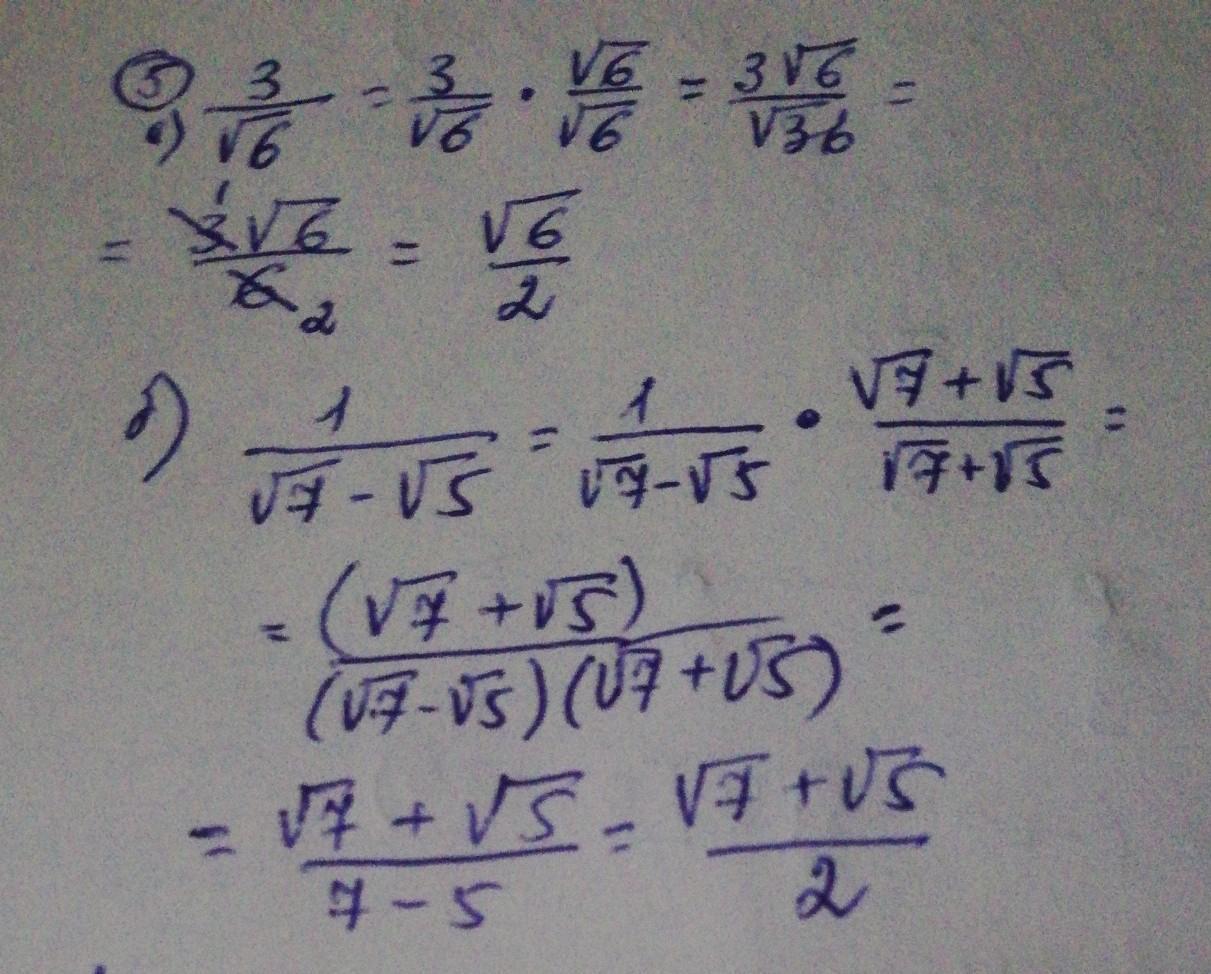 ③ а) 3/√6 = 3/√6 · √6/√6 = 3√6/√36 =
= 3̸¹√6/6̸₂ = √6/2
б) 1/(√7 - √5) = 1/(√7 - √5) · (√7 + √5)/(√7 + √5) =
= (√7 + √5)/((√7 - √5)(√7 + √5)) =
= (√7 + √5)/(7 - 5) = (√7 + √5)/2